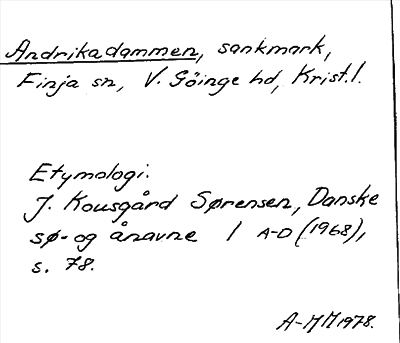 Andrikadammen, sankmark,
Finja sn, V. Göinge hd, Krist.l.
Etymologi:
J. Kousgård Sørensen, Danske
sø- og ånavne 1 A-D (1968),
s. 78.
A-MM 1978.